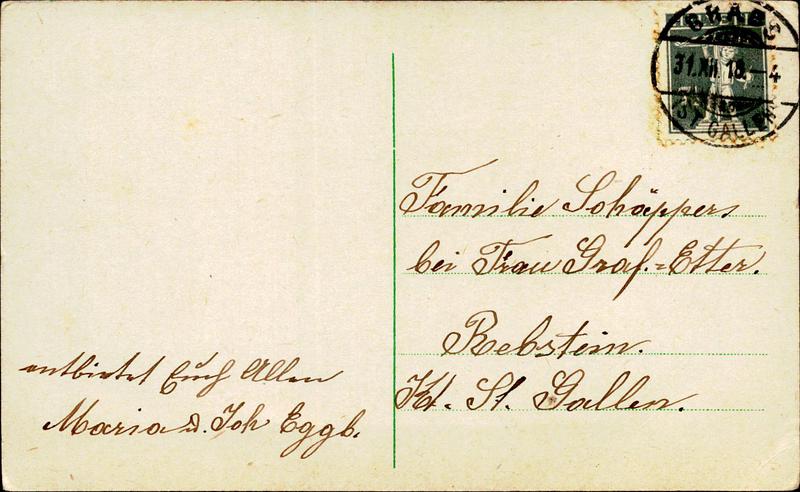 31.XII.18.–4
ST. GALLEN
Familie Schäppers
bei Frau Graf=Etter.
Rebstein.
Kt. St. Gallen.
entbietet Euch Allen
Maria u. Joh Eggb.